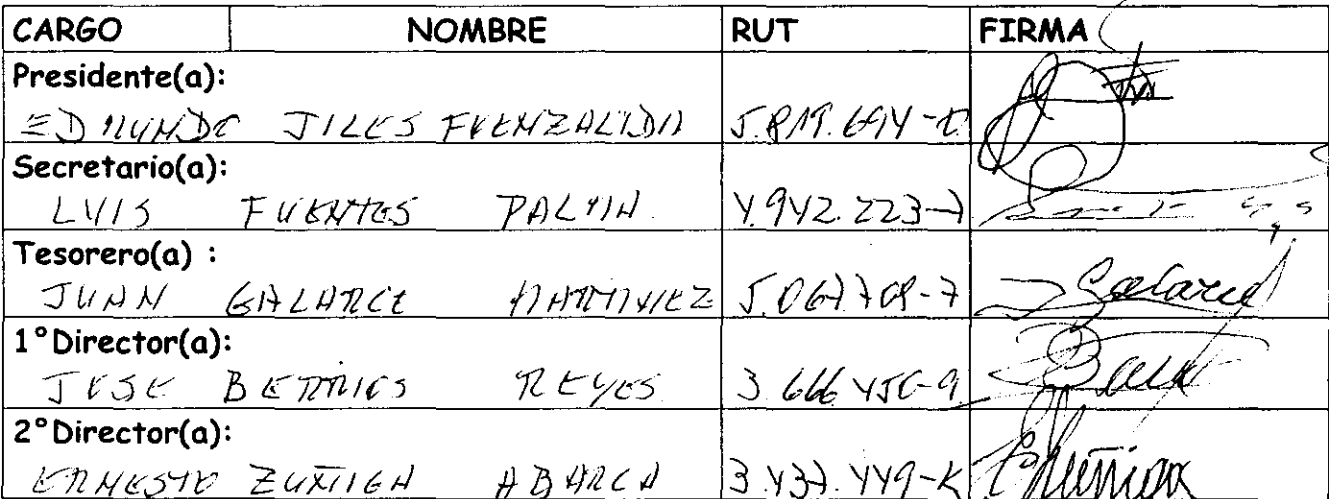 CARGO NOMBRE RUT FIRMA
Presidente(a):
EDMUNDO JILES FUENZALIDA
Secretario(a):
LUIS FUENTES 4.942.223-7
Tesorero(a) :
JUAN GALARCE MARTINEZ
1°Director(a):
JOSE BERRIOS REYES
2°Director(a):
ERNESTO ZUÑIGA ABARCA 3.437.449-K